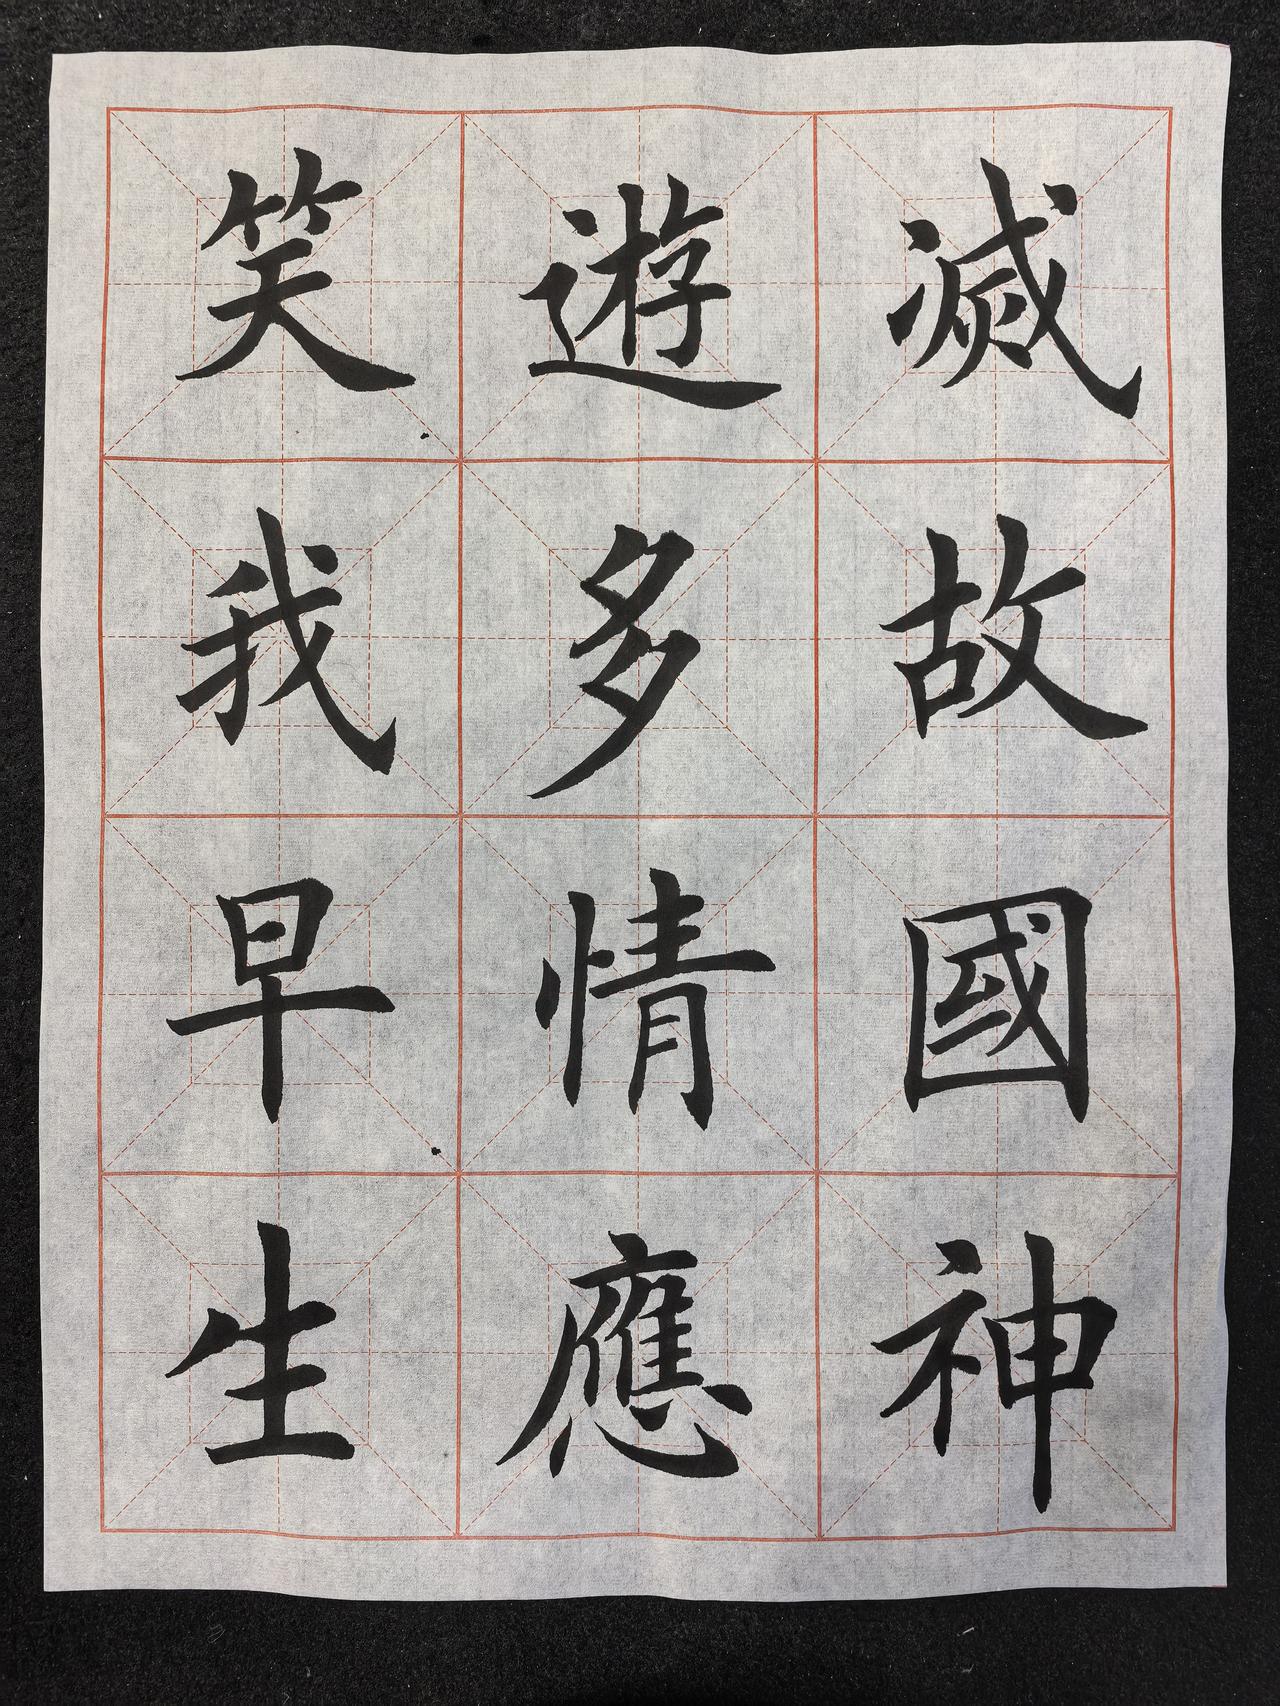 滅故國神
遊多情應
笑我早生